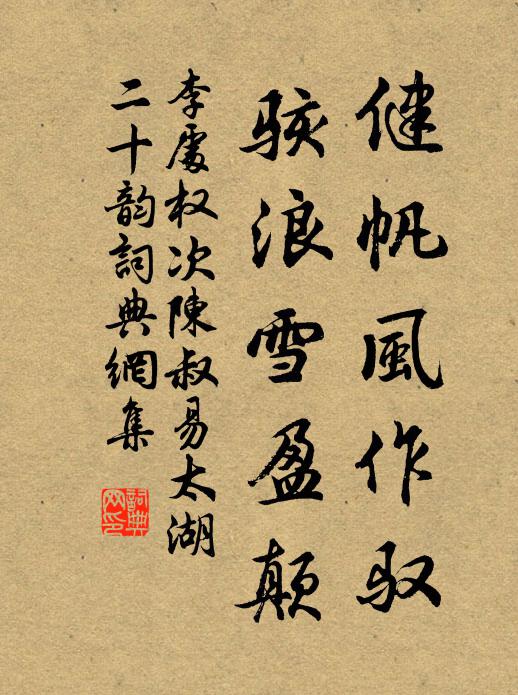 健帆風作馭
駭浪雪盈顛
李處权次陳叔易太湖
二十韵詞典網集
詞典网印